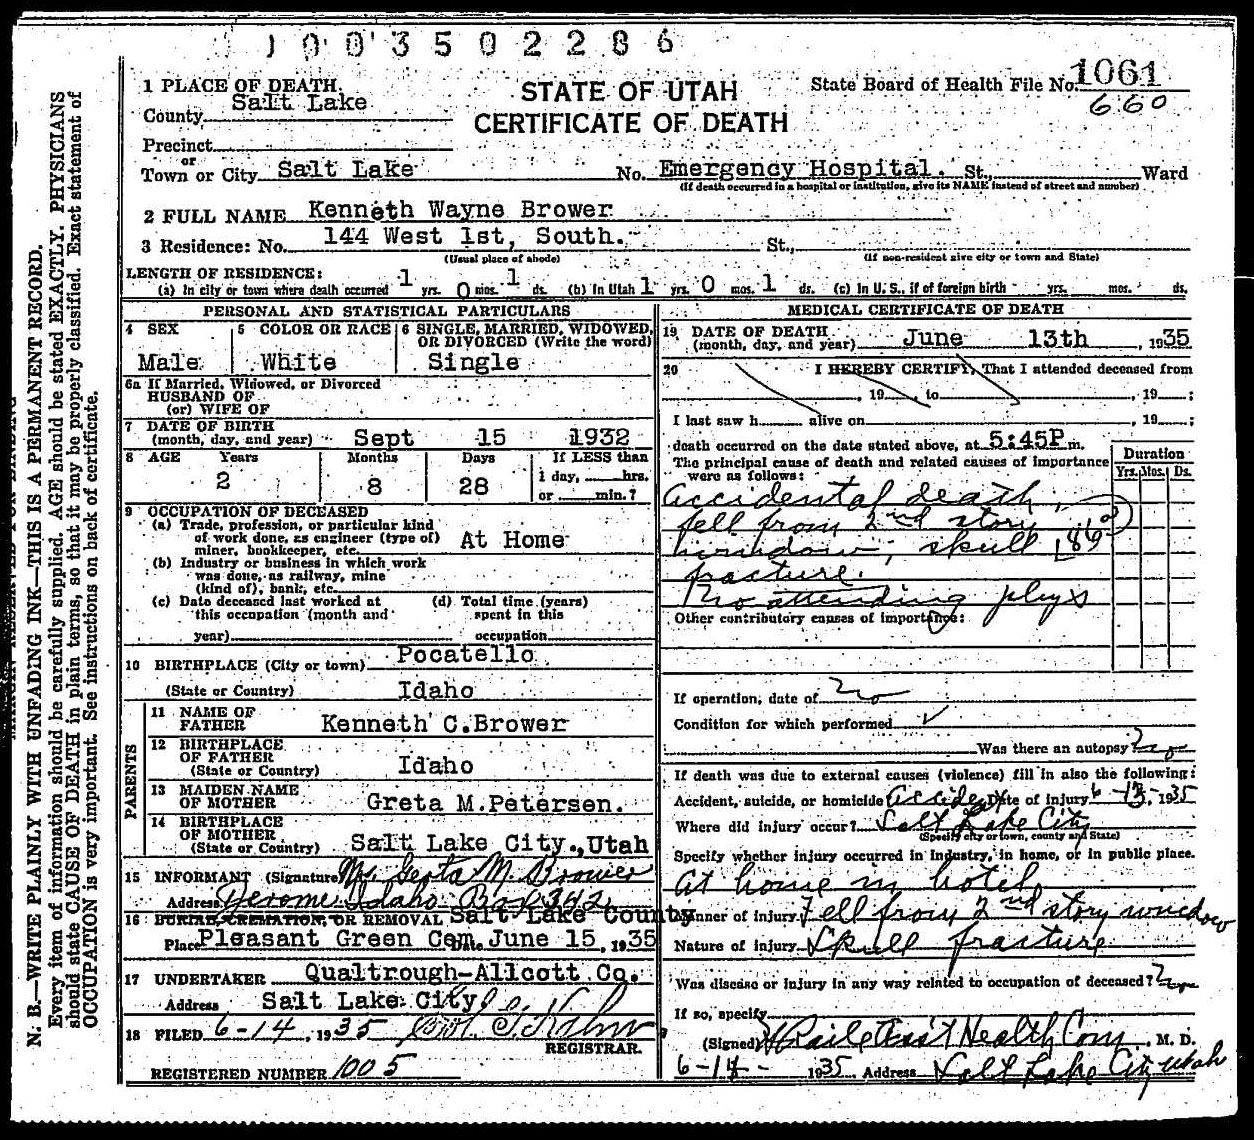 1003502286
1 PLACE OF DEATH
STATE OF UTAH
CERTIFICATE OF DEATH
State Board of Health File No. 1061
660
County Salt Lake
Precinct
or
Town or City Salt Lake No. Emergency Hospital. St., Ward
(If death occurred in a hospital or institution, give its NAME instead of street and number)
2 FULL NAME Kenneth Wayne Brower
3 Residence: No. 144 West 1st, South. St.,
(Usual place of abode) (If non-resident give city or town and State)
LENGTH OF RESIDENCE:
(a) In city or town where death occurred 1 yrs. 0 mos. 1 ds. (b) In Utah 1 yrs. 0 mos. 1 ds. (c) In U.S., if of foreign birth yrs. mos. ds.
PERSONAL AND STATISTICAL PARTICULARS
4 SEX Male
5 COLOR OR RACE White
6 SINGLE, MARRIED, WIDOWED, OR DIVORCED (Write the word) Single
6a If Married, Widowed, or Divorced
HUSBAND OF
(or) WIFE OF
7 DATE OF BIRTH
(month, day, and year) Sept 15 1932
8 AGE Years Months Days If LESS than
2 8 28 1 day, hrs.
or min.?
9 OCCUPATION OF DECEASED
(a) Trade, profession, or particular kind
of work done, as engineer (type of)
miner, bookkeeper, etc. At Home
(b) Industry or business in which work
was done, as railway, mine
(kind of), bank, etc.
(c) Date deceased last worked at
this occupation (month and
year)
(d) Total time (years)
spent in this
occupation
10 BIRTHPLACE (City or town) Pocatello
(State or Country) Idaho
PARENTS
11 NAME OF
FATHER Kenneth C. Brower
12 BIRTHPLACE
OF FATHER
(State or Country) Idaho
13 MAIDEN NAME
OF MOTHER Greta M. Petersen.
14 BIRTHPLACE
OF MOTHER
(State or Country) Salt Lake City., Utah
15 INFORMANT (Signature) Mrs. Greta M. Brower
Address Jerome Idaho Box 342
16 BURIAL, CREMATION, OR REMOVAL Salt Lake County
Place Pleasant Green Cem Date June 15, 1935
17 UNDERTAKER Qualtrough-Allcott Co.
Address Salt Lake City
18 FILED 6-14, 1935
REGISTRAR.
REGISTERED NUMBER 1005
MEDICAL CERTIFICATE OF DEATH
19 DATE OF DEATH
(month, day, and year) June 13th, 1935
20 I HEREBY CERTIFY, That I attended deceased from
, 19 , to , 19 ;
I last saw h alive on , 19 ;
death occurred on the date stated above, at 5:45P m.
The principal cause of death and related causes of importance
were as follows:
Duration
Yrs. Mos. Ds.
Accidental death,
fell from 2nd story
window; skull
fracture.
No attending phys
Other contributory causes of importance:
If operation, date of no
Condition for which performed
Was there an autopsy? no
If death was due to external causes (violence) fill in also the following:
Accident, suicide, or homicide Accident Date of injury 6-13, 1935
Where did injury occur? Salt Lake City
(Specify city or town, county and State)
Specify whether injury occurred in industry, in home, or in public place.
At home in hotel
Manner of injury Fell from 2nd story window
Nature of injury Skull fracture
Was disease or injury in any way related to occupation of deceased? no
If so, specify
(Signed) Ass't Health Com, M. D.
6-14 1935 Address Salt Lake City Utah
N. B.—WRITE PLAINLY WITH UNFADING INK—THIS IS A PERMANENT RECORD.
Every item of information should be carefully supplied. AGE should be stated EXACTLY. PHYSICIANS
should state CAUSE OF DEATH in plain terms, so that it may be properly classified. Exact statement of
OCCUPATION is very important. See instructions on back of certificate.